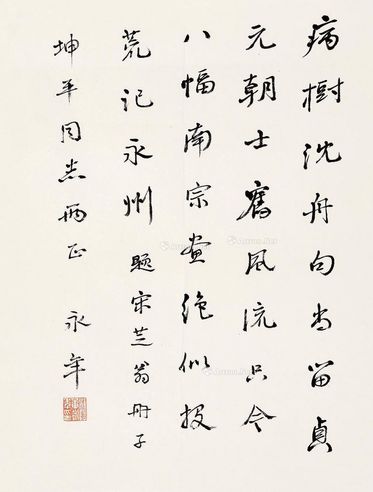 病樹沈舟句尚留貞
元朝士舊風流只今
八幅南宗畫絶似投
荒記永州 題宋芝翁冊子
坤羊同志兩正 永年